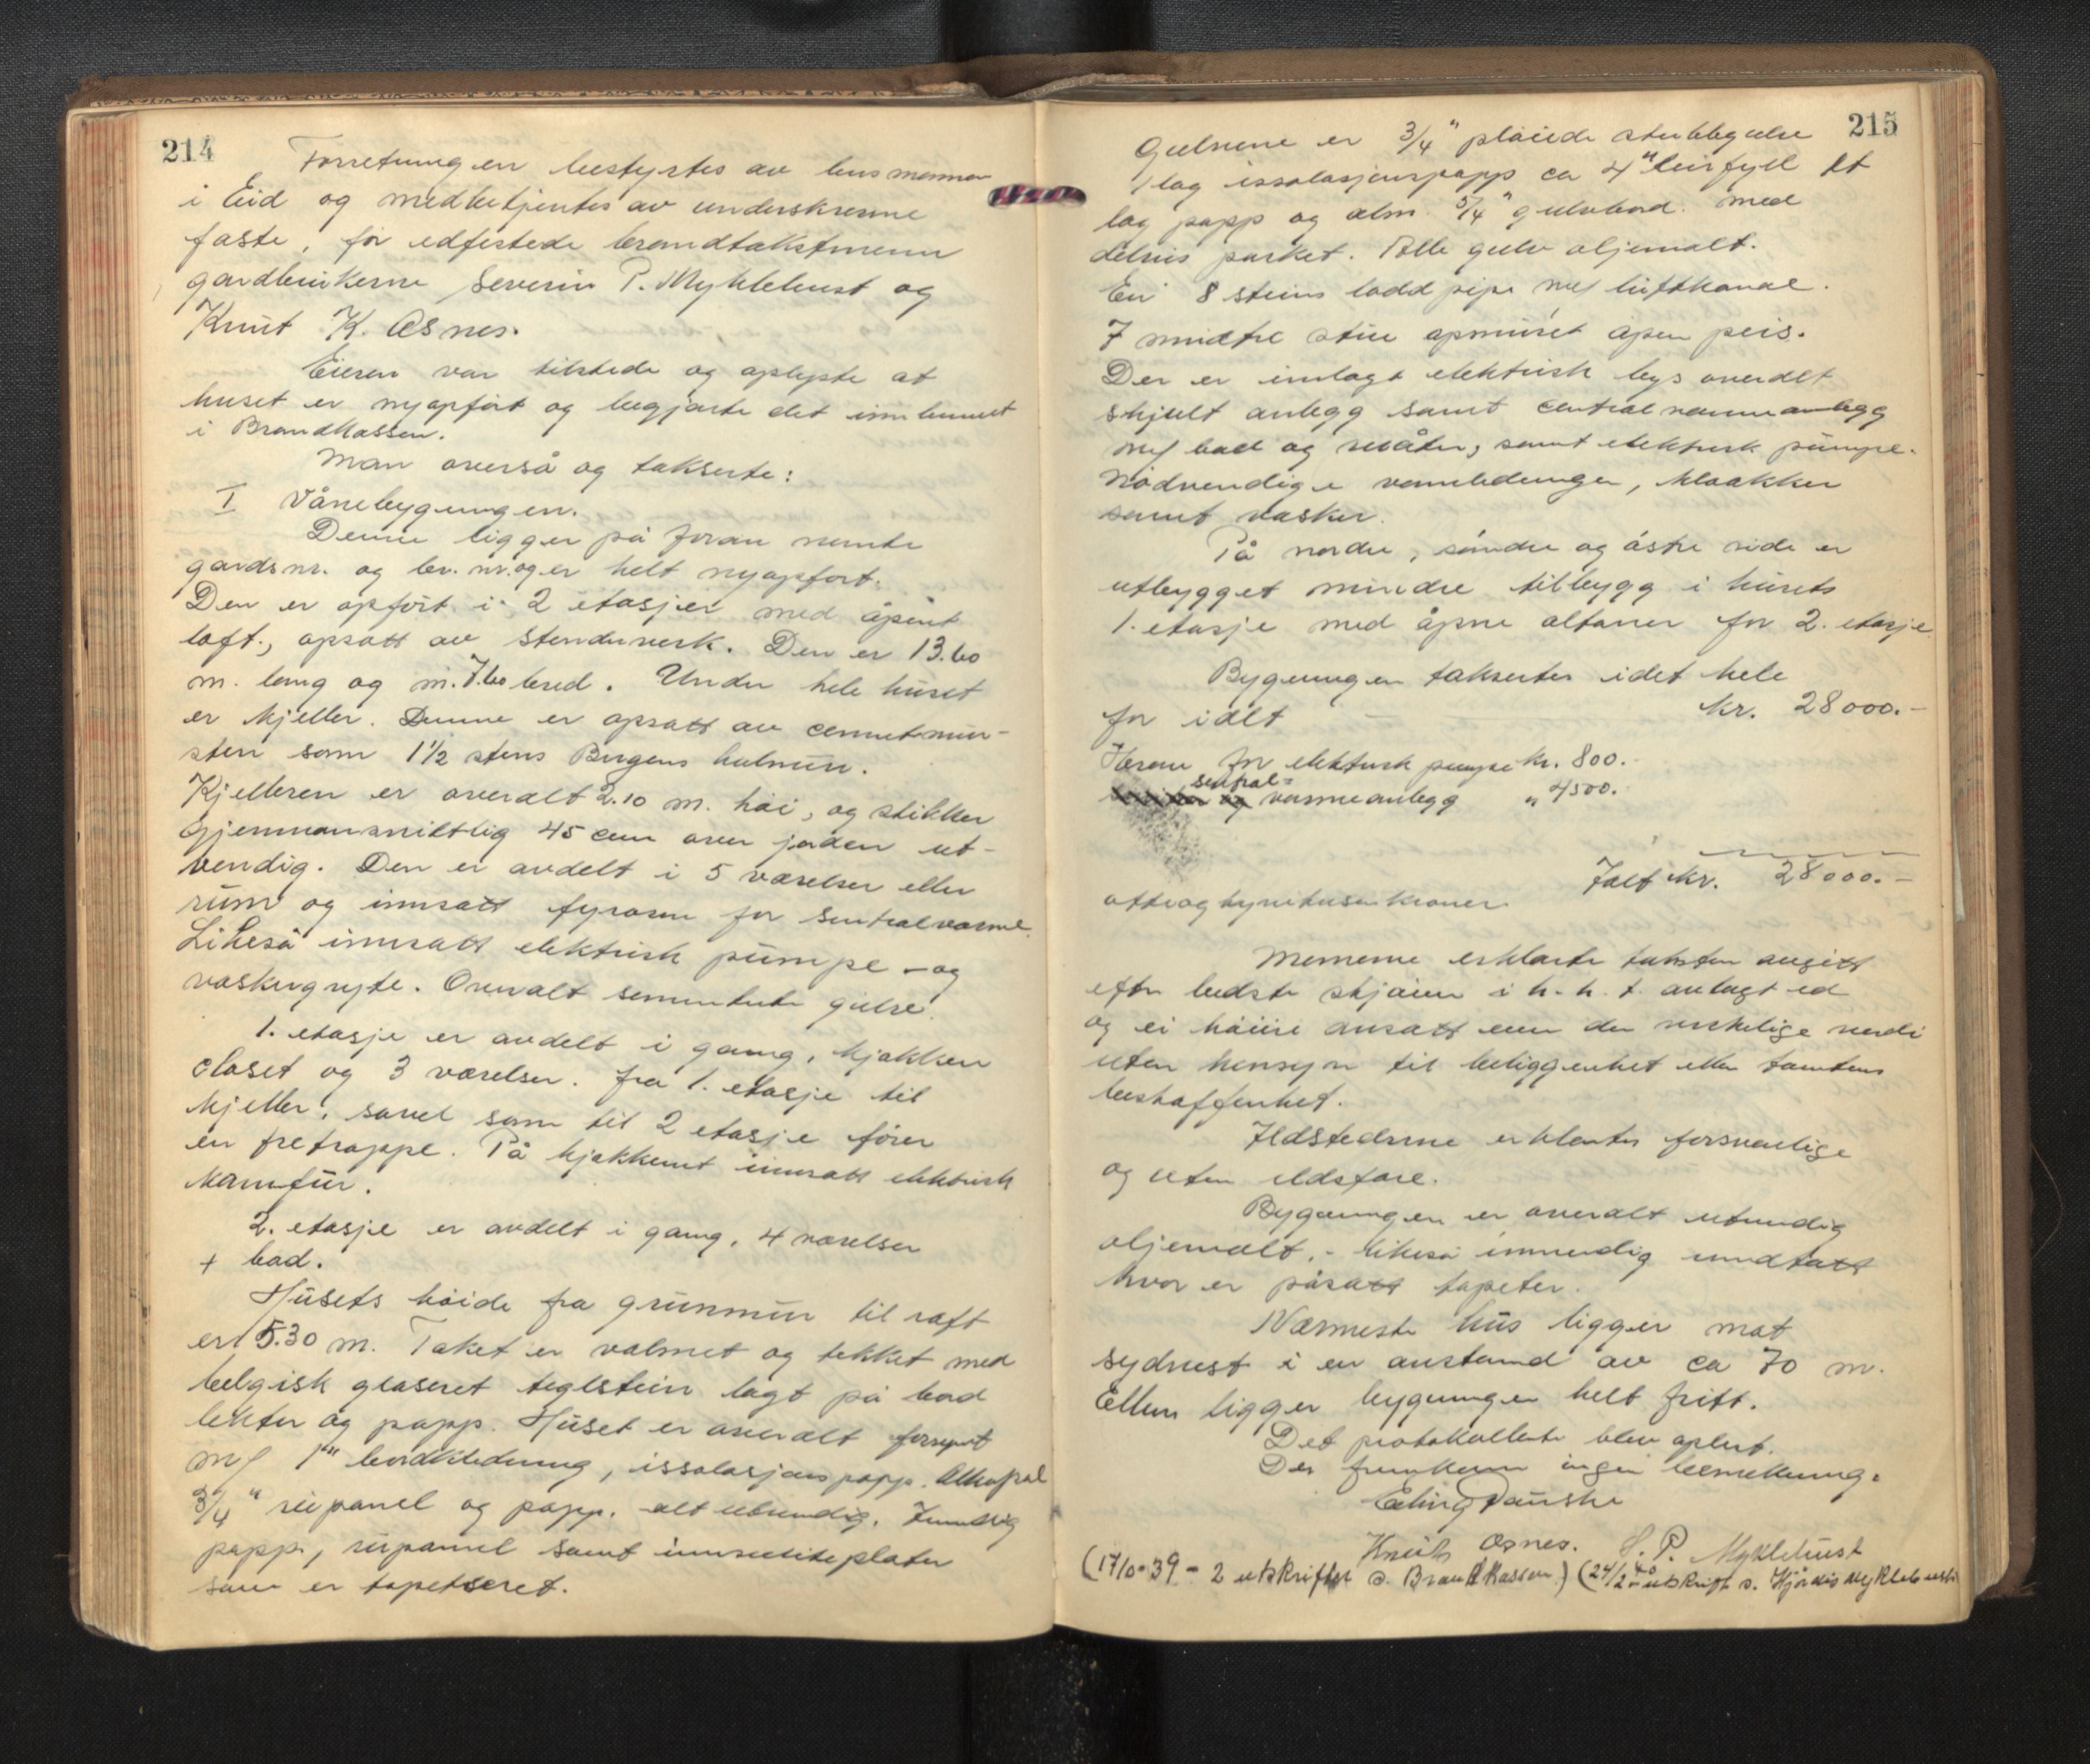 214
Forretningen bestyrtes av lensmannen
i Eid og medbetjentes av underskrevne
faste, før edfestede brandtakstmenn
gardbrukerne Severin P. Myklebust og
Knut K. Osnes.
Eieren var tilstede og oplyste at
huset er nyopført og begjærte det innlemmet
i Brandkassen.
Man overså og takserte:
I Vånebygningen.
Denne ligger på foran nevnte
gardsnr. og br. nr. og er helt nyopført.
Den er opført i 2 etasjer med åpent
loft, opsatt av stenderverk. Den er 13.60
m. lang og m. 7.60 bred. Under hele huset
er kjeller. Denne er opsatt av cementmur-
sten som 1 1/2 stens Bergens hulmur.
Kjelleren er overalt 2.10 m. høi, og stikker
gjennomsnittlig 45 cm over jorden ut-
vendig. Den er avdelt i 5 værelser eller
rum og innsatt fyrovn for sentralvarme.
Likeså innsatt elektrisk pumpe - og
vaskegryte. Overalt sementerte gulve.
1. etasje er avdelt i gang, kjøkken
closet og 3 værelser. Fra 1. etasje til
kjeller, såvel som til 2 etasje fører
en tretrappe. På kjøkkenet innsatt elektrisk
komfur.
2. etasje er avdelt i gang, 4 værelser
+ bad.
Husets høide fra grunnmur til raft
er 5.30 m. Taket er valmet og tekket med
belgisk glaseret teglstein lagt på bord
lekter og papp. Huset er overalt forsynt
m/ 1" bordkledning, issolasjons papp.
3/4" rupanel og papp. - alt utvendig. Innvendig
papp, rupanel samt innsulite plater
som er tapetseret.
215
Gulvene er 3/4" pløiede stubbgulve
1 lag issolasjonspapp ca 4" leirfyll et
lag papp og alm. 5/4" gulvbord. med
delvis parket. Alle gulv oljemalt.
En 8 steins lodd pipe m/ luftkanal.
I midtre stue opmuret åpen peis.
Der er innlagt elektrisk lys overalt
skjult anlegg samt centralvarmeanlegg
m/ bad og, samt elektrisk pumpe.
Nødvendige vannledninger, kloakker
samt vasker.
På nordre, søndre og østre side er
utbygget mindre tilbygg i husets
1. etasje med åpne altaner for 2. etasje
Bygningen takseres i det hele
for ialt kr. 28000.-
Herav for elektrisk pumpe kr. 800.-
sentral=
varmeanlegg " 4500.-
Ialt kr. 28000.-
otteogtyvetusen kroner.
Mennene erklærte taksten avgitt
efter bedste skjønn i h. h. t. avlagt ed
og ei høiere ansatt enn den virkelige verdi
uten hensyn til beliggenhet eller tomtens
beskaffenhet.
Ildstederne erklærtes forsvarlige
og uten ildsfare.
Bygningen er overalt utvendig
oljemalt, - likeså innvendig undtatt
hvor er påsatt tapeter.
Nærmeste hus ligger mot
sydvest i en avstand av ca 70 m.
Ellers ligger bygningen helt fritt.
Det protokollerte blev oplest.
Der fremkom ingen bemerkning.
Erling Dauske
Knut Osnes. S. P. Myklebust
(17/10-39 - 2 utskrifter s. Brandkassen.) (24/2-40 utskrift s. Hjørdis Myklebust)